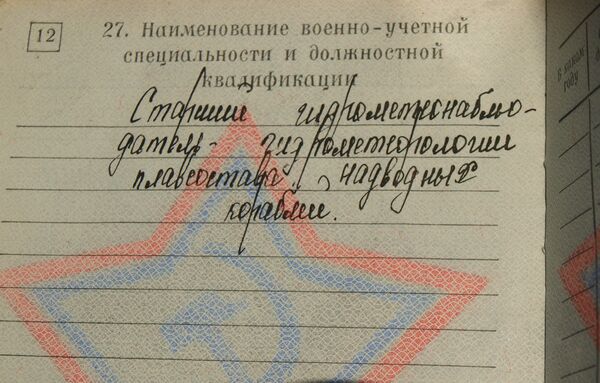 12
27. Наименование военно-учетной
специальности и должностной
квалификации
Старший гидрометеонаблю-
датель- гидрометеорологии
плавсостава надводных
кораблей.
В каком
году